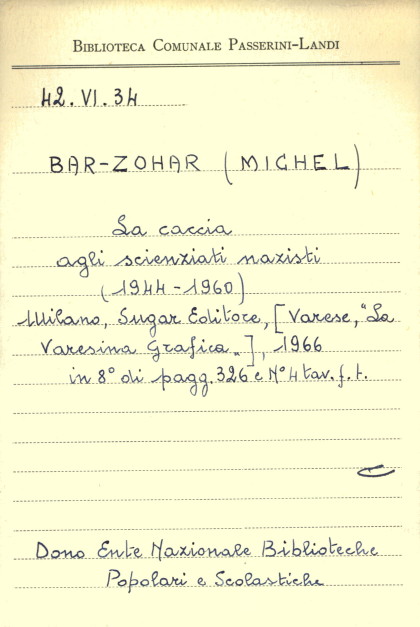 BIBLIOTECA COMUNALE PASSERINI-LANDI
42.VI.34
BAR-ZOHAR (MICHEL)
La caccia
agli scienziati nazisti
(1944-1960)
Milano, Sugar Editore, [Varese, "La
Varesina Grafica„], 1966
in 8° di pagg. 326 e N° 4 tav. f. t.
Dono Ente Nazionale Biblioteche
Popolari e Scolastiche